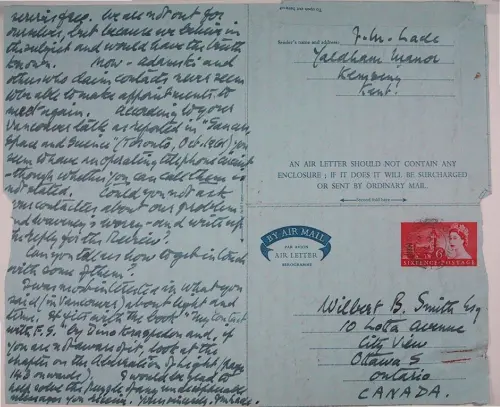 We are not out for
ourselves, but because we believe in
this subject and would have the truth
known. Now - Adamski and
others who claim contacts never seem
to be able to make appointments to
meet again. According to your
Vancouver talk as reported in "Saucers,
Space and Science" (Toronto, Oct.), you
seem to have an operating telephone circuit
- though whether you can call them is
not stated. Could you not ask
your contacts about our problem
and write up
the reply for the Review.
Can you tell us how to get in touch
with some of them?
I was most interested in what you
said (in Vancouver) about light and
time. It fits with the book "My Contact
with F.S." by Dino Kraspedon and, if
you are not aware of it, look at the
chapter on the of Light (page
onwards). I would be glad to
help solve the puzzle of any undecipherable
messages you receive. Yours sincerely,
To open cut here
Sender's name and address:
J. M. Lade
Yaldham Manor
Kemsing
Kent.
AN AIR LETTER SHOULD NOT CONTAIN ANY
ENCLOSURE ; IF IT DOES IT WILL BE SURCHARGED
OR SENT BY ORDINARY MAIL.
Second fold here
BY AIR MAIL
PAR AVION
AIR LETTER
AEROGRAMME
6D
SIXPENCE POSTAGE
Wilbert B. Smith Esq
10 Lotta Avenue
City View
Ottawa 5
Ontario
CANADA.